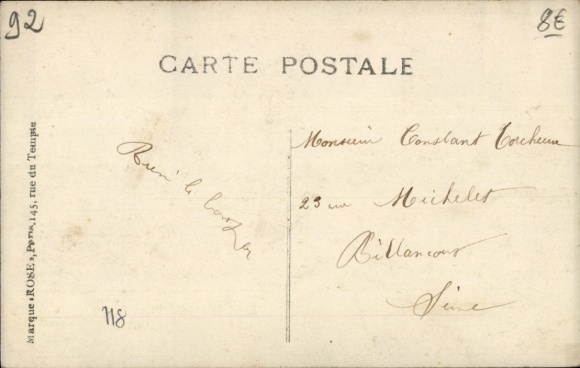 92
8€
CARTE POSTALE
Marque « ROSE », Paris, 145, rue du Temple
René le
Monsieur Constant
23 rue Michelet
Billancourt
Seine
118